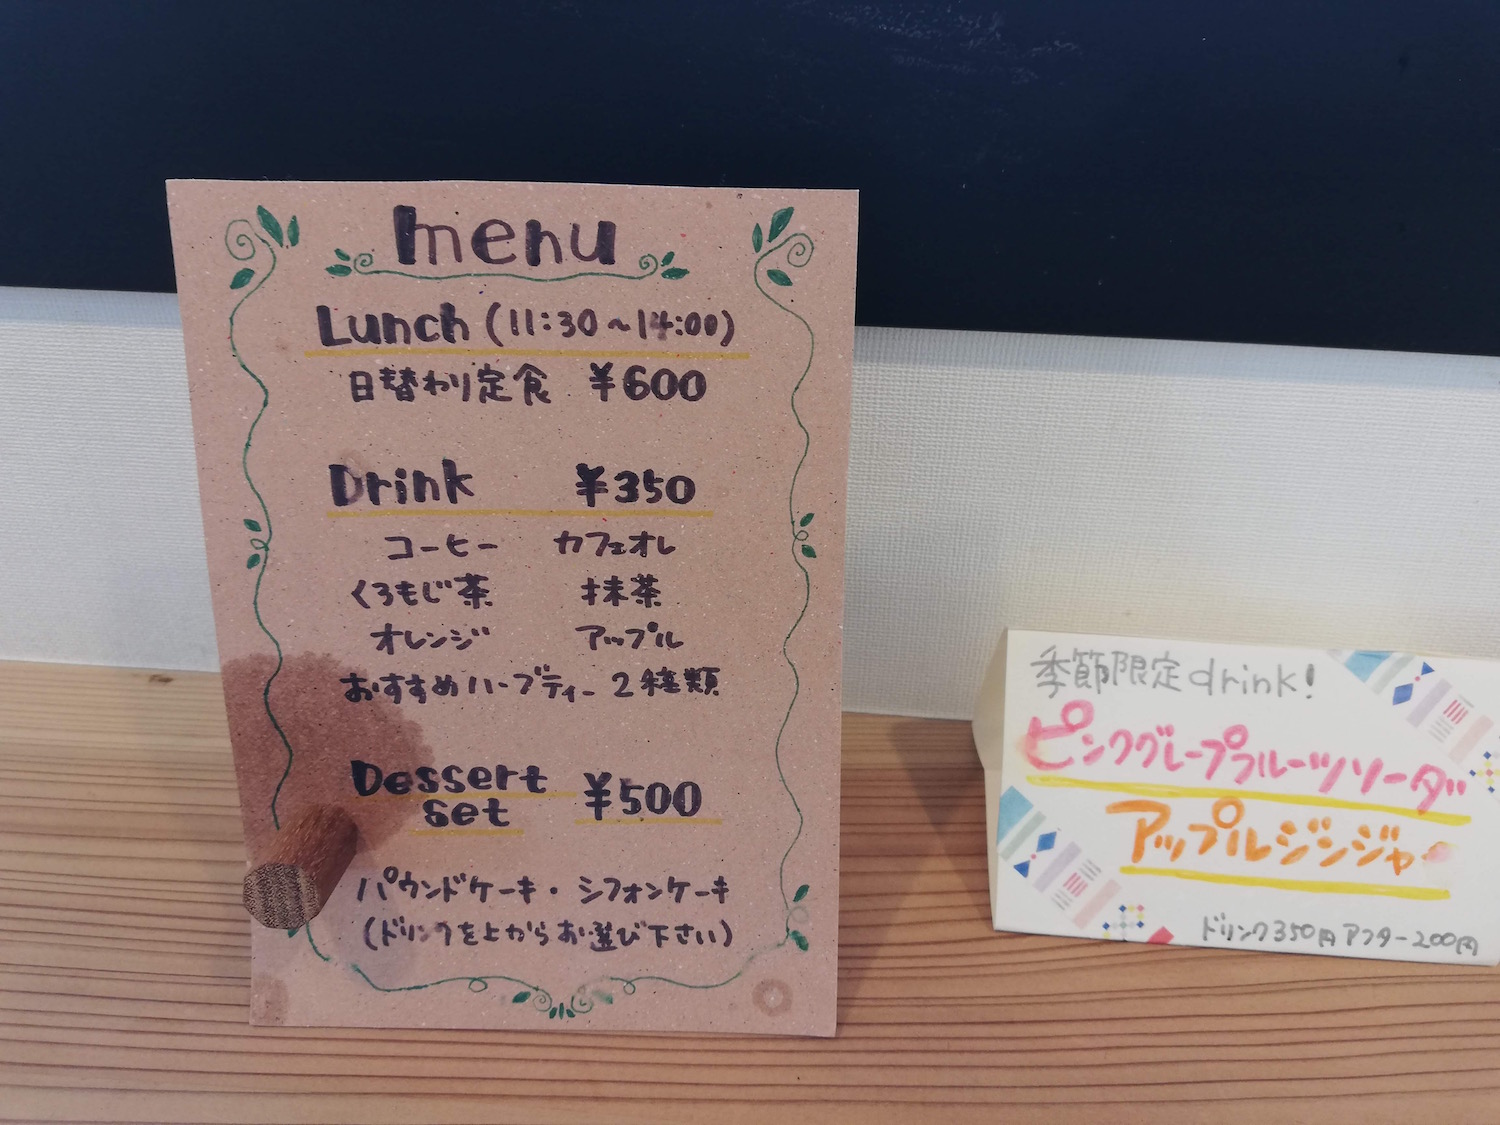 menu
Lunch (11:30～14:00)
日替わり定食 ¥600
Drink ¥350
コーヒー カフェオレ
くろもじ茶 抹茶
オレンジ アップル
おすすめハーブティー 2種類
Dessert Set ¥500
パウンドケーキ・シフォンケーキ
(ドリンクを上からお選び下さい)
季節限定drink!
ピンクグレープフルーツソーダ
アップルジンジャー
ドリンク350円 アフター200円